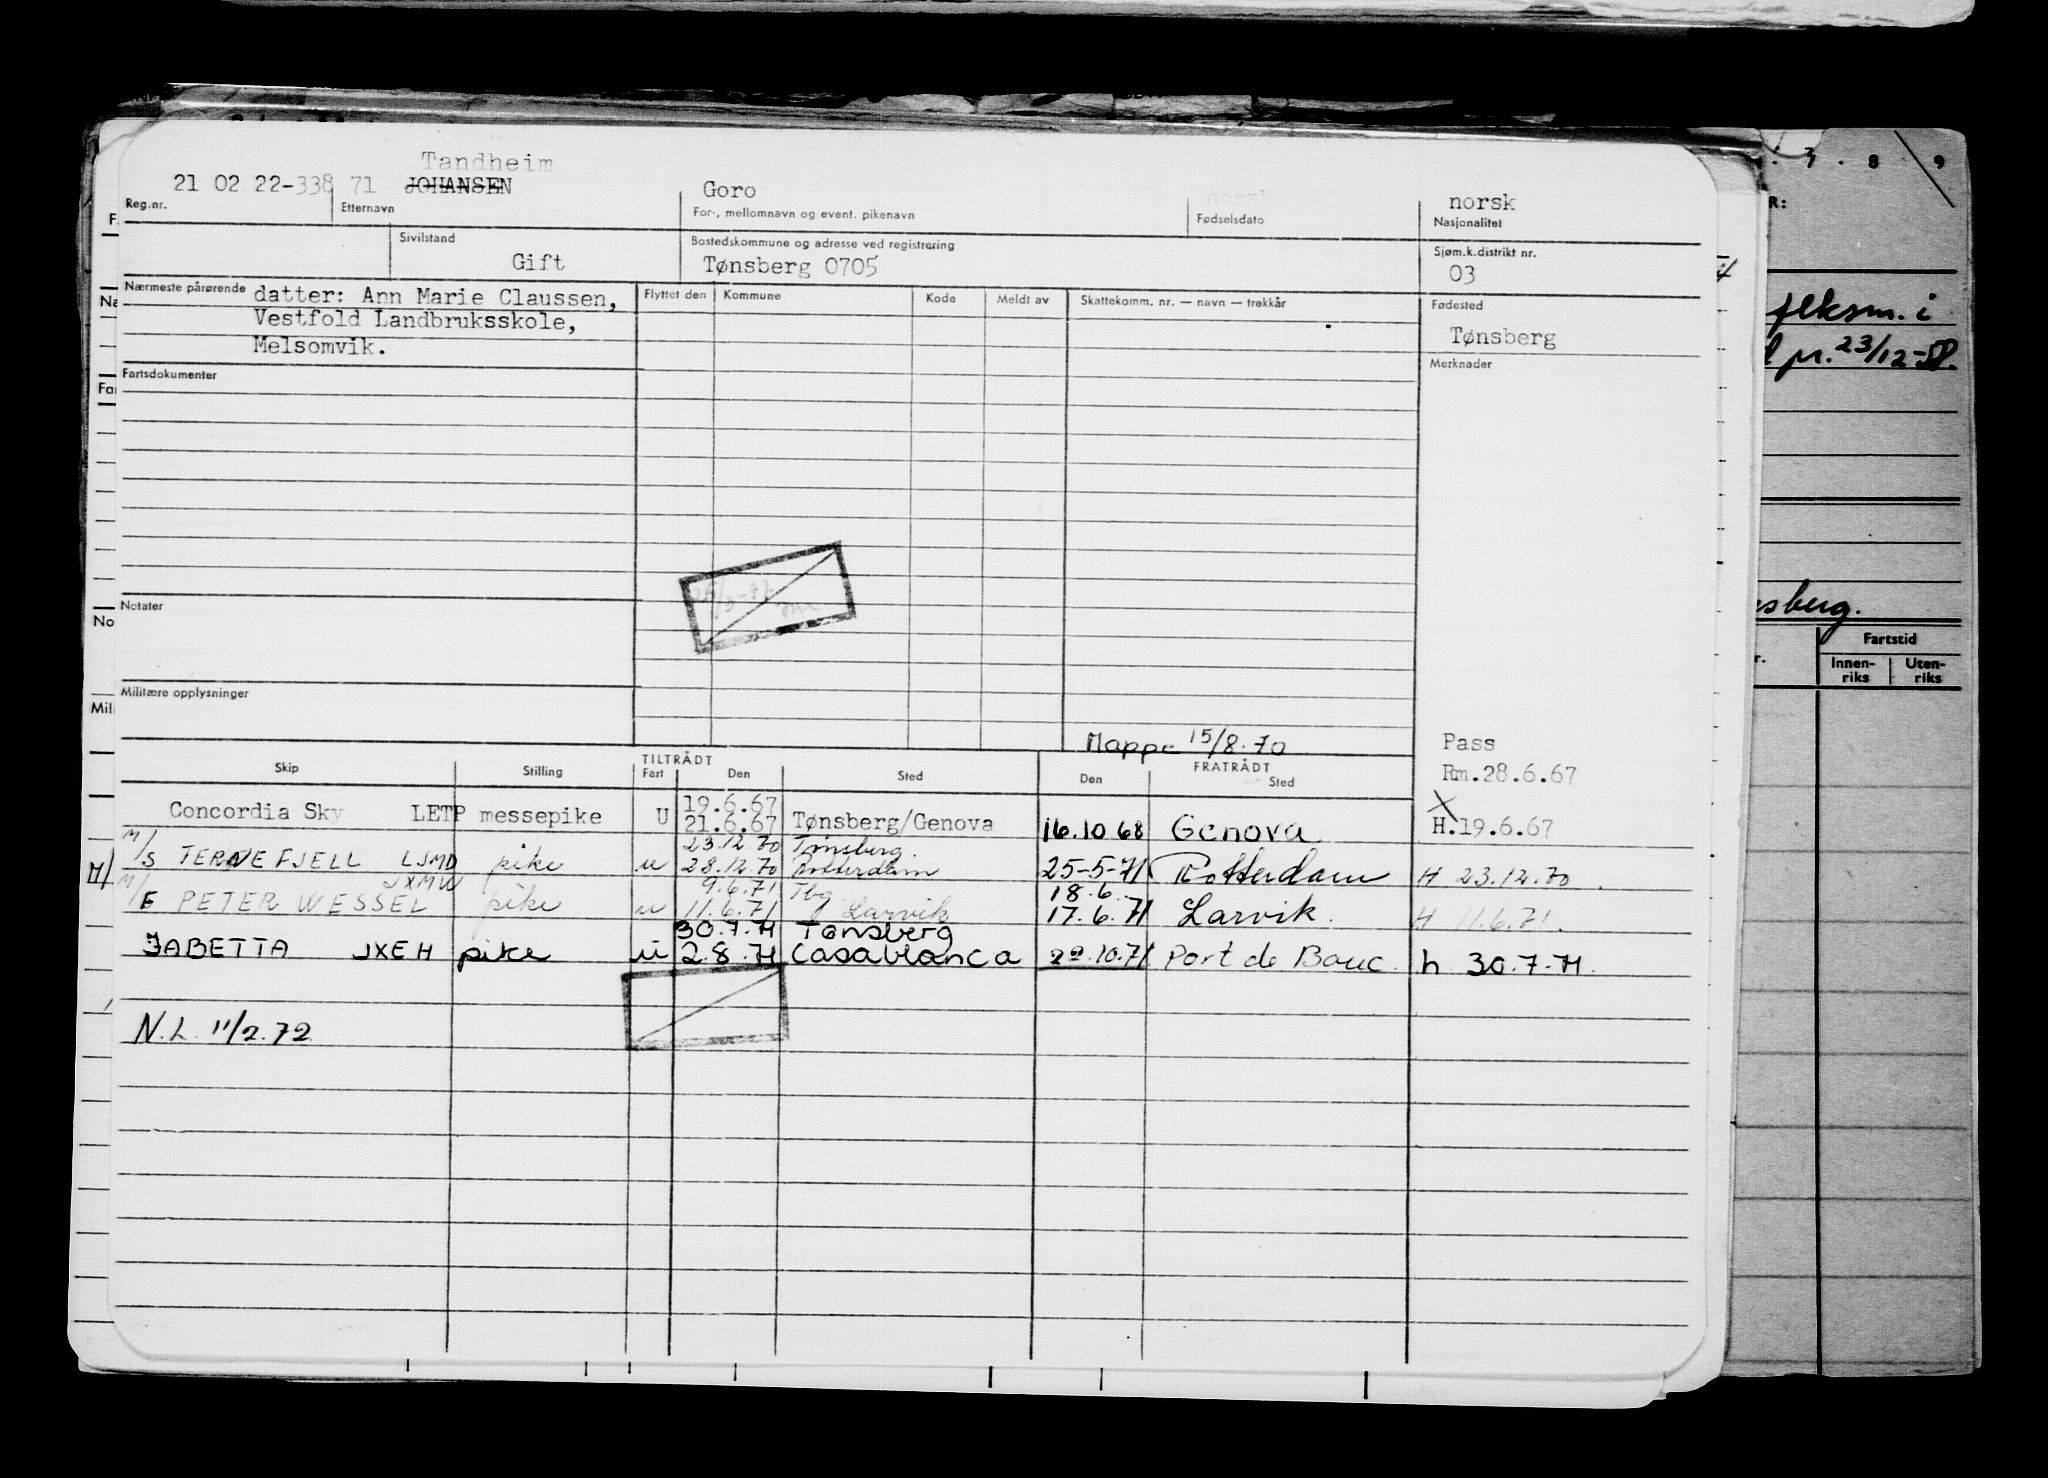 Tandheim
21 02 22-338 71 JOHANSEN Goro norsk norsk
Reg.nr. Etternavn For-, mellomnavn og event. pikenavn Fødselsdato Nasjonalitet
Sivilstand Bostedskommune og adresse ved registrering Sjøm.k.distrikt nr.
Gift Tønsberg 0705 03
Nærmeste pårørende datter: Ann Marie Claussen, Flyttet den Kommune Kode Meldt av Skattekomm. nr. — navn — trekkår Fødested
Vestfold Landbruksskole, Tønsberg
Melsomvik.
Merknader
Fartsdokumenter
Notater
Militære opplysninger
Mappe 15/8.70 Pass
Skip Stilling TILTRÅDT Fart Den Sted FRATRÅDT Den Sted Rm.28.6.67
19.6.67
Concordia Sky LETP messepike U 21.6.67 Tønsberg/Genova 16.10 68 Genova X H.19.6.67
23.12.70 Tønsberg
M/S TERNEFJELL LJMD pike u 28.12.70 Rotterdam 25-5-71 Rotterdam H 23.12.70
JXMW 9.6.71 Tbg 18.6.
M/F PETER WESSEL pike u 11.6.71 Larvik 17.6.71 Larvik. H 11.6.71.
30.7.71 Tønsberg
JABETTA JXEH pike u 2.8.71 Casablanca 22.10.71 Port de Bouc. h 30.7.71.
N.L. 11/2.72
7 8 9
R:
fleksm. i
pr. 23/12-58.
sberg.
Fartstid
Innen-riks Uten-riks
F.
Na
Far
No
Mili
M/